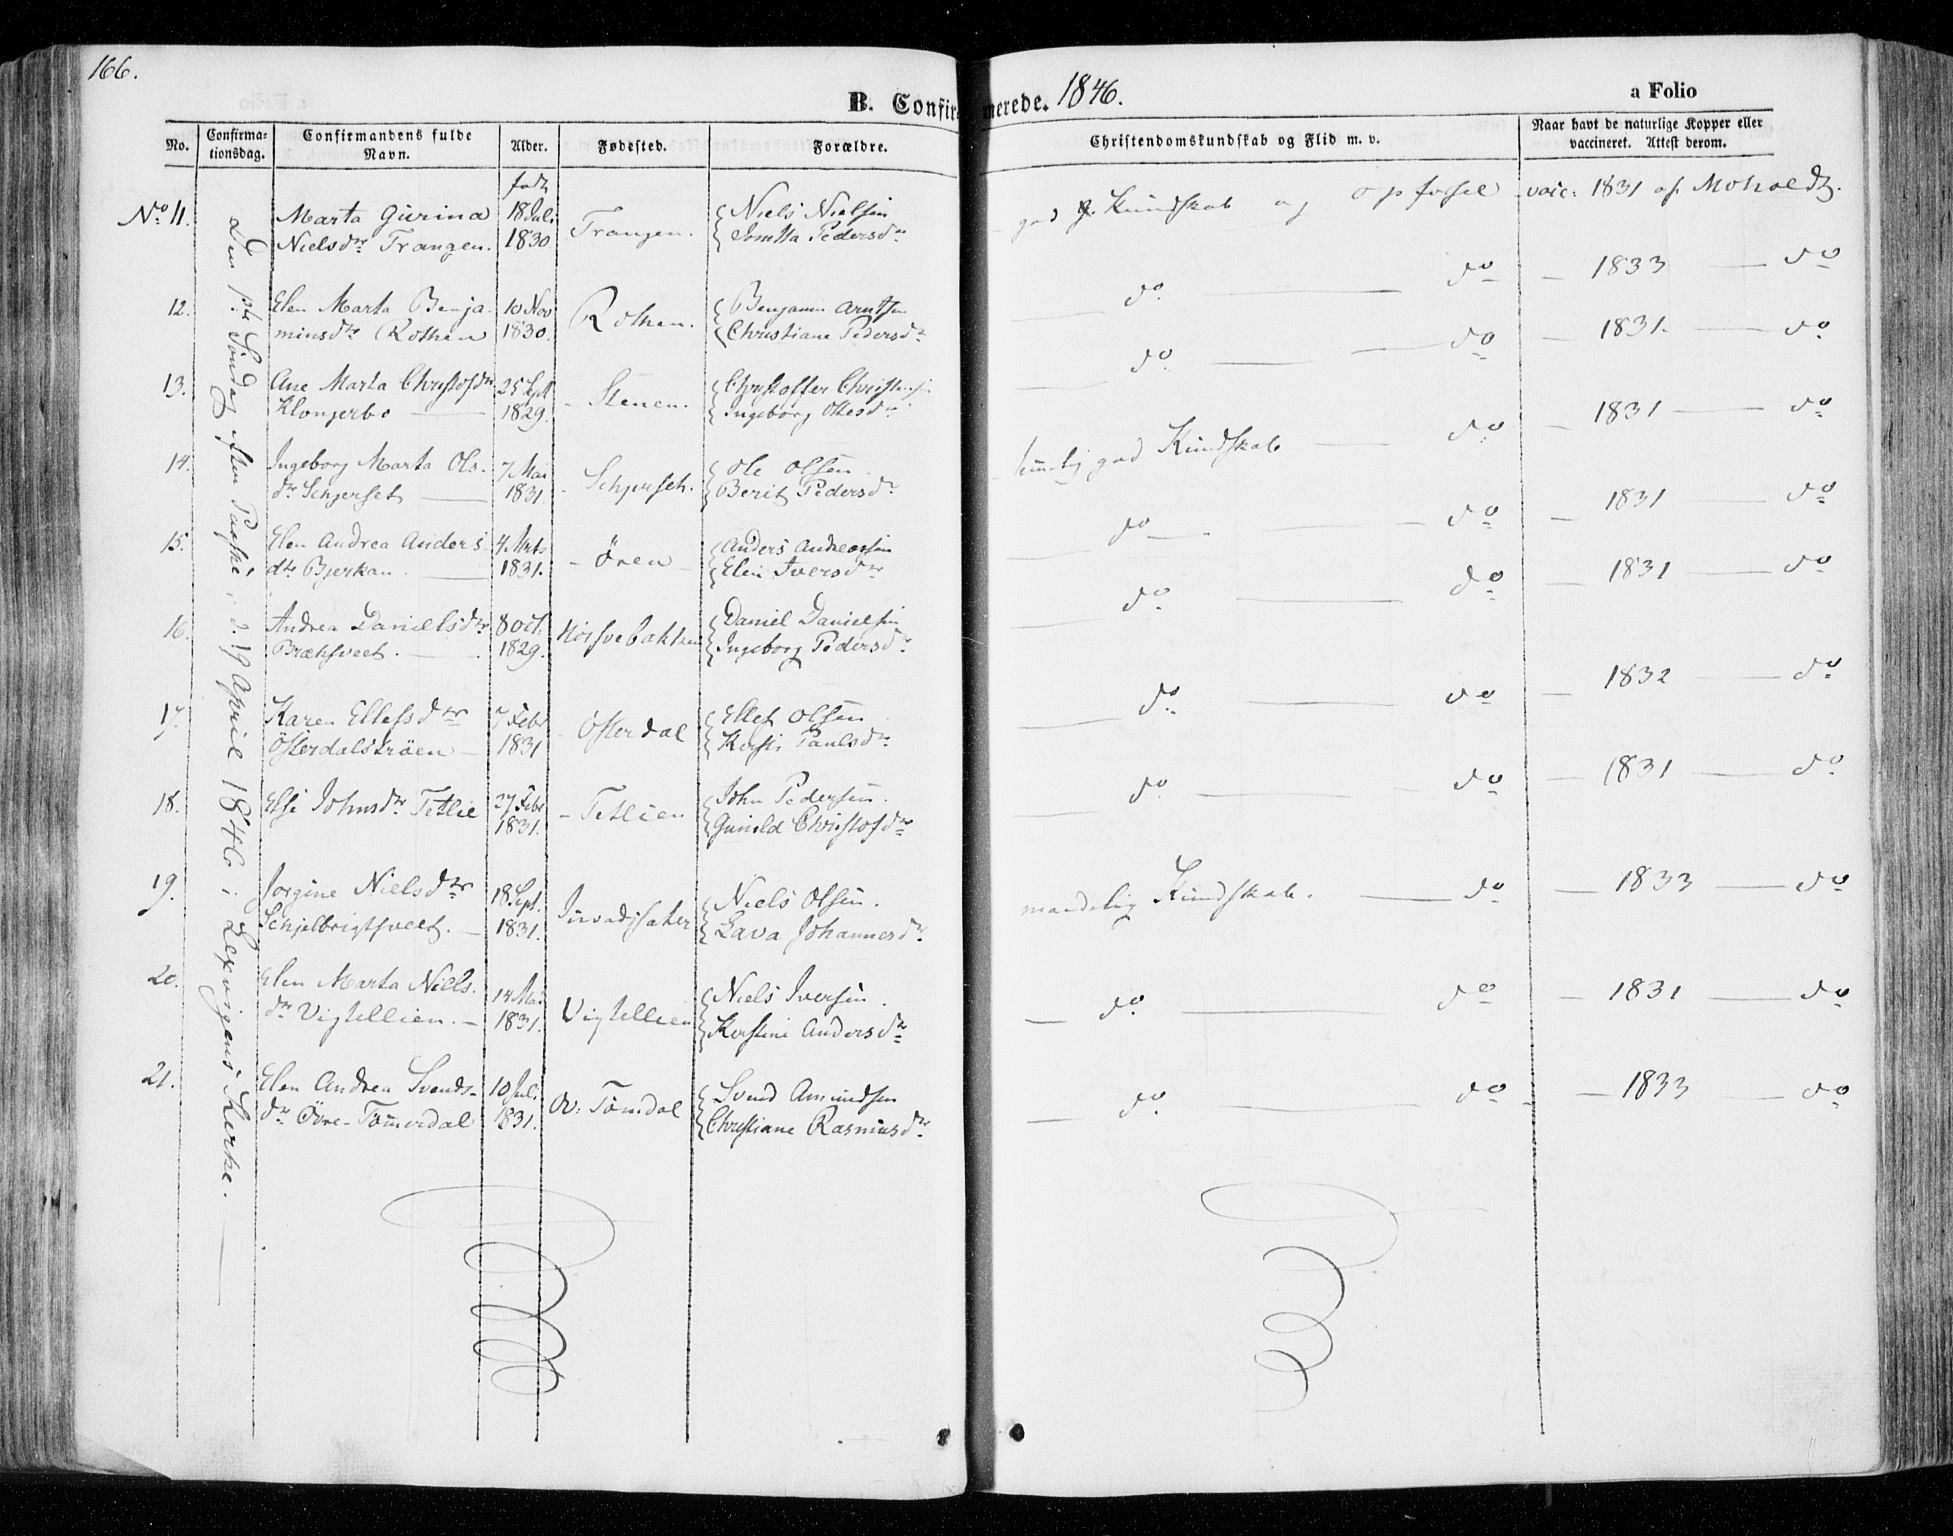 166.
B. Confirmerede. 1846.
a Folio
No.
Confirma-
tionsdag.
Confirmandens fulde
Navn.
Alder.
Fødested.
Forældre.
Christendomskundskab og Flid m. v.
Naar havt de naturlige Kopper eller
vaccineret. Attest derom.
Den 1ste Söndag efter Paaske, d. 19 April 1846 i Lexvigens Kirke.
født
No 11. Marta Gurina 18 Jul. Trangen. Niels Nielsen god Kundskab og opførsel vacc: 1831 af Moholdt.
Nielsdr Trangen. 1830. Pedersdr
12. Elen Marta Benja- 10 Nov Rothen. Benjamin Arntsen do do 1833 do
minsdr Rothen 1830. Christiane Pedersdr
13. Ane Marta Christofdr 25 Sept Stenen. Christoffer Christensen do do 1831. do
Klongerbo 1829. Ingeborg Olesdr
14. Ingeborg Marta Ols- 7 Mai Schjerset. Ole Olsen temmelig god Kundskab do 1831 do
dr Schjerset 1831. Berit Pedersdr
15. Elen Andrea Anders- 4 Mrts Ören Anders Andreasen do do 1831 do
dtr Bjerkan. 1831. Elen Iversdr
16. Andrea Danielsdr 8 Oct. Daniel Danielsen do do 1831 do
Bræksveet. 1829. Ingeborg Pedersdr
17. Karen Ellefsdtr 7 Febr Österdal Ellef Olsen do do 1832 do
Österdalströen 1831 Kirsti Paulsdr
18. Elsi Johnsdr Tetlie 27 Febr Tetlien John Pedersen. do do 1831 do
1831. Gunild Christofdr
19. Jorgine Nielsdtr 18 Sept. Niels Olsen. maadelig Kundskab. do 1833 do
Schjelbrigtsveet. 1831. Lava Johannesdr
20. Elen Marta Niels- 14 Mai Vigtellien Niels Iversen. do do 1831 do
dr Vigtellien. 1831. Kerstine Andersdr
21. Elen Andrea Svends- 10 Juli Öv: Tömdal Svend Amundsen do do 1833 do
dr Övre-Tömmerdal 1831. Christiane Rasmusdr